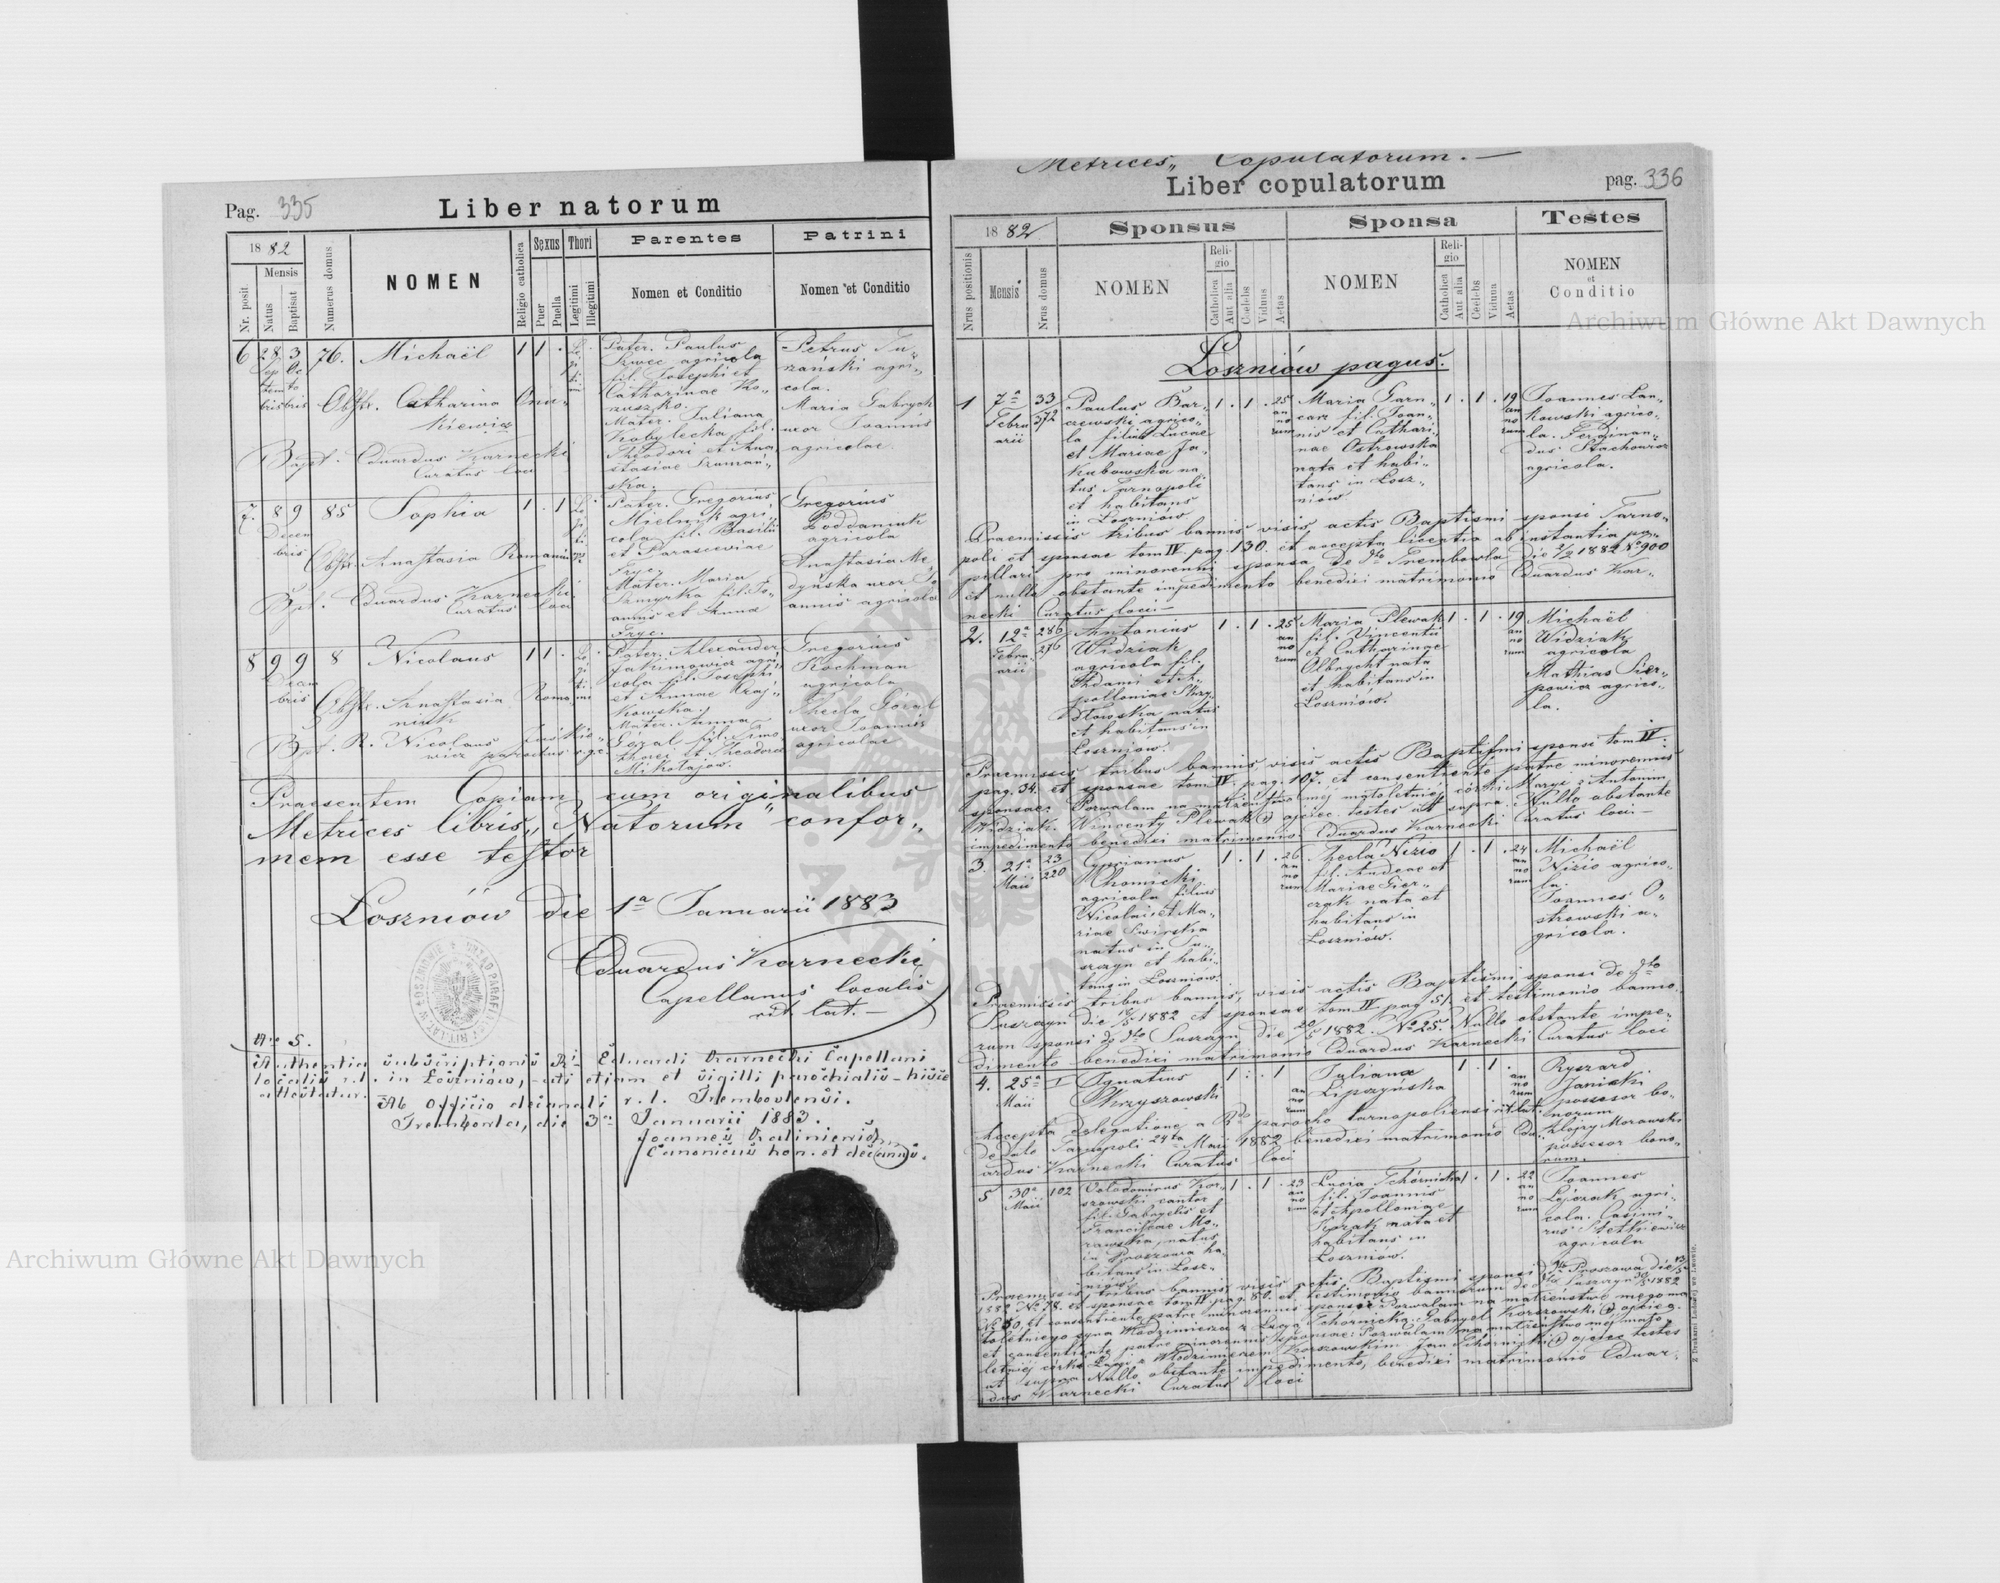 Pag. 335
Liber natorum
1882
Nr. posit.
Mensis
Natus
Baptisat
Numerus domus
NOMEN
Religio catholica
Sexus
Puer
Puella
Thori
Legitimi
Illegitimi
Parentes
Nomen et Conditio
Patrini
Nomen et Conditio
6 28 3 76. Michaël 1 1 .
Septembris Octobris
Obstr. Catharina
Bapt. Eduardus Karnecki
Curatus loci
Pater. Paulus
Szwec agricola
fil. Josephi et
Catharinae Ko-
nuszko.
Mater. Juliana
Kobylecka fil.
Theodori et Ana-
stasiae Szumań-
ska.
Petrus Tu-
zański agri-
cola.
Maria Gabrych
uxor Joannis
agricolae.
7. 8 9 85 Sophia 1 . 1
Decembris
Obstr. Anastasia Romaniuk
Bpt. Eduardus Karnecki
Curatus loci
Pater. Gregorius
Mielnik agri-
cola fil. Basilii
et Parasceviae
Fryc.
Mater. Maria
Szmyrka fil. Jo-
annis et Annae
Fryc.
Gregorius
Poddaniuk
agricola
Anastasia Me-
dyńska uxor Jo-
annis agricolae
8 9 9 8 Nicolaus 1 1 .
Decembris
Obstr. Anastasia Roma-
niuk
Bpt. R. Nicolaus
parochus r. g. c.
Pater. Alexander
Jakimowicz agri-
cola fil. Josephi
et Annae Kraj-
kowska.
Mater. Anna
Góral fil. Timo-
thaei et Theodorae
Mikołajow.
Gregorius
Kochman
agricola
Thecla Góral
uxor Joannis
agricolae
Praesentem Copiam cum originalibus
Metrices libris „Natorum" confor-
mem esse testor
Loszniów die 1ª Januarii 1883
Eduardus Karnecki
Capellanus localis
rit. lat. —
Nro 5.
Authentia subscriptionis Rdi Eduardi Karnecki Capellani
localis r. l. in Łoszniów, uti etiam et sigilli parochialis hisce
attestatur.
Ab Officio decanali r. l. Trembovlensi.
Trembowla, die 3ª Januarii 1883.
Joannes Kaliniewicz
Canonicus hon. et decanus.
Metrices „Copulatorum. —
Liber copulatorum
pag. 336
1882
Nrus positionis
Mensis
Nrus domus
Sponsus
NOMEN
Religio
Catholica
Aut alia
Coelebs
Viduus
Aetas
Sponsa
NOMEN
Religio
Catholica
Aut alia
Coelebs
Vidua
Aetas
Testes
NOMEN
et
Conditio
Loszniów pagus.
1 7ª Februarii 33 372
Paulus Bar-
czewski agrico-
la filius Lucae
et Mariae Ja-
kubowska na-
tus Tarnopoli
et habitans
in Loszniów
1 . 1 . 25 annorum
Maria Garn-
carz fil. Joan-
nis et Cathari-
nae Ostrowska
nata et habi-
tans in Łosz-
niów
1 . 1 . 19 annorum
Joannes Lan-
kowski agrico-
la. Ferdinan-
dus Stachowicz
agricola.
Praemissis tribus bannis, visis actis Baptismi sponsi Tarno-
poli et sponsae tom IV. pag. 130. et accepta licentia ab instantia pu-
pillari pro minorenni sponsa De dto Trembowla die 2/2 1882 No 900
et nullo obstante impedimento benedixi matrimonio Eduardus Kar-
necki Curatus loci —
2. 12ª Februarii 286 296
Antonius
Widziak
agricola fil.
Adami et A-
polloniae Skrzy-
dłowska natus
et habitans in
Loszniów.
1 . 1 . 25 annorum
Maria Plewak
fil. Vincentii
et Catharinae
Olbrycht nata
et habitans in
Loszniów.
1 . 1 . 19 annorum
Michaël
Widziak
agricola
Mathias Sier-
powicz agrico-
la.
Praemissis tribus bannis, visis actis Baptismi sponsi tom IV.
pag. 34. et sponsae tom IV. pag. 107. et consentiente patre minorennis
sponsae: Pozwalam na małżeństwo mej małoletniej córki Maryi z Antonim
Widziak. Wincenty Plewak ojciec. testes ut supra. Nullo obstante
impedimento benedixi matrimonio. Eduardus Karnecki Curatus loci —
3. 21ª Maii 23 220
Cyprianus
Chomicki
agricola filius
Nicolai et Ma-
riae Swirska
natus in Su-
szczyn et habi-
tans in Loszniów
1 . 1 . 26 annorum
Thecla Nizio
fil. Andreae et
Mariae Gier-
czak nata et
habitans in
Loszniów.
1 . 1 . 24 annorum
Michaël
Nizio agrico-
la.
Joannes O-
strowski a-
gricola.
Praemissis tribus bannis, visis actis Baptismi sponsi de dto
Suszczyn die 1882 et sponsae tom IV. pag. 51. et testimonio banno-
rum sponsi de dto Suszczyn die 20/5 1882. No 25. Nullo obstante impe-
dimento benedixi matrimonio Eduardus Karnecki Curatus loci
4. 25ª Maii 1
Ignatius
Chrzyszowski
1 . 1 annorum
Juliana
Lipczyńska
1 . 1 . annorum
Ryszard
Janicki
possesor bo-
norum
Morawski
possesor bono-
rum.
Accepta delegatione a Rdo parocho tarnopoliensi rit. lat.
De dato Tarnopoli 24ta Maii 1882 benedixi matrimonio Edu-
ardus Karnecki Curatus loci
5 30ª Maii 102
Volodomirus Kor-
szowski cantor
fil. Gabryelis et
Franciscae Mo-
rawska, natus
in Proszowa ha-
bitans in Losz-
niów
1 . 1 . 23 annorum
Lucia Tchórnicka
fil. Joannis
et Apolloniae
nata et
habitans in
Loszniów.
1 . 1 . 22 annorum
Joannes
Lojczak agri-
cola. Casimi-
rus
agricola
Praemissis tribus bannis, visis actis Baptismi sponsi de dto Proszowa die
1882 No 78. et sponsae tom IV pag. 80. et testimonio bannorum de dto Suszczyn 1882
et consentiente patre minorennis sponsi: Pozwalam na małżeństwo mego ma-
łoletniego syna Włodzimierza z Łucyą Tchórnicką. Gabryel Korszowski ojciec.
et consentiente patre minorennis sponsae: Pozwalam na małżeństwo mej mało-
letniej córki Łucyi z Włodzimierzem Korszowskim Jan Tchórnicki ojciec testes
ut supra Nullo obstante impedimento, benedixi matrimonio Eduar-
dus Karnecki Curatus loci
Archiwum Główne Akt Dawnych
Archiwum Główne Akt Dawnych